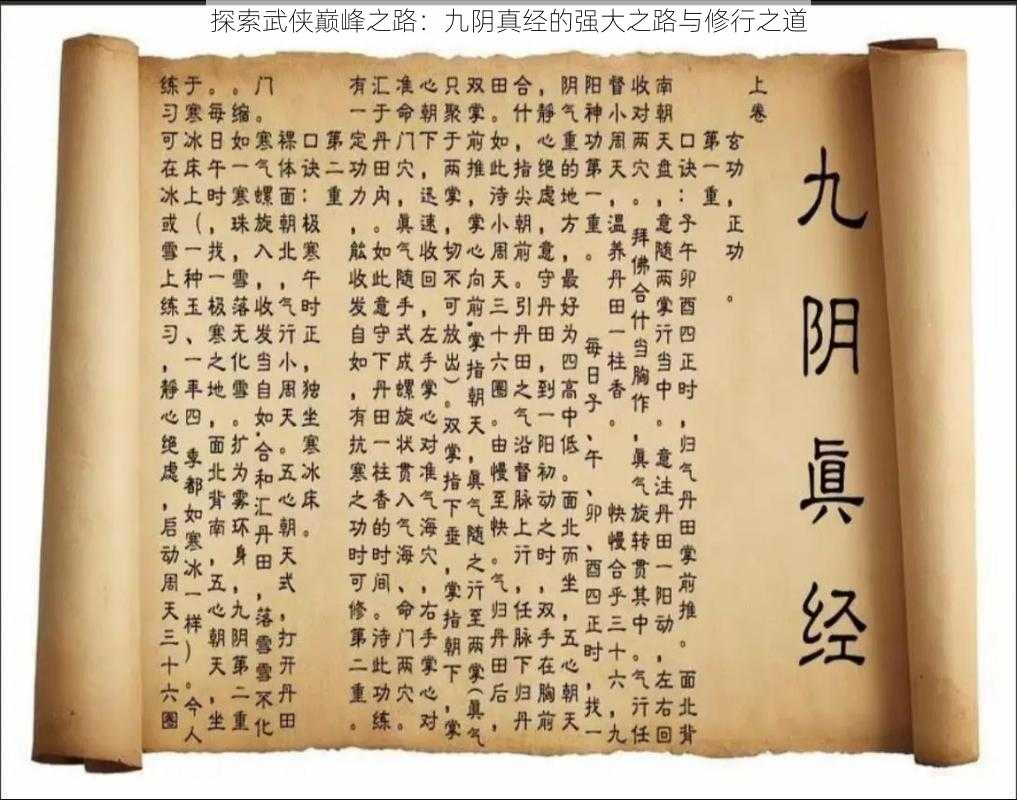 探索武侠巅峰之路：九阴真经的强大之路与修行之道
九阴眞经
上卷
玄功，正功。
第一重，
口诀：子午卯酉四正时，归气丹田掌前推。面北背
南朝天盘，意随两掌行当中。意注丹田一阳动，左右回
收对两穴。，拜佛合什当胸作，眞气旋转贯其中。气行任
督小周天，温养丹田一柱香。快慢合乎三十六，九
阳神功第一重。每日子、午、卯、酉四正时，找一
阴气重的地方，最好为四高中低。面北而坐，五心朝天
，静心绝虑，意守丹田，到一阳初动之时，双手在胸前
合什，指尖朝前。引丹田之气沿督脉上行，任脉下归丹
田。如此待小周天三十六圈。由慢至快。气归丹田后，
双掌前推，掌心向前.掌指朝天，眞气随之行至两掌(眞气
只聚于两掌，切不可放出)。双掌指下垂，掌指朝下，掌
心朝下，迅速收回，左手掌心对准气海穴，右手掌心对
准命门穴，眞气随手式成螺旋状贯入气海、命门两穴。
汇于丹田内。如此意守下丹田一柱香的时间。待此功练
有一定功力，。能收发自如，有抗寒之功时可修第二重。
第二重
口诀：极寒午时正，独坐寒冰床。
裸体面朝北，气行小周天。五心朝天式，打开丹田
门。寒气螺旋入，收发当自如.合和汇丹田，落雪雪不化
。缩如一寒珠，雪落无化雪。扩为雾环身，九阴第二重
。每日午时，找一极寒之地，面北背南，五心朝天，坐
于。寒冰床上(一种玉、一年四季都如寒冰一样)。今人
练习可在冰或雪上练习，静心绝虑，启动周天三十六圈